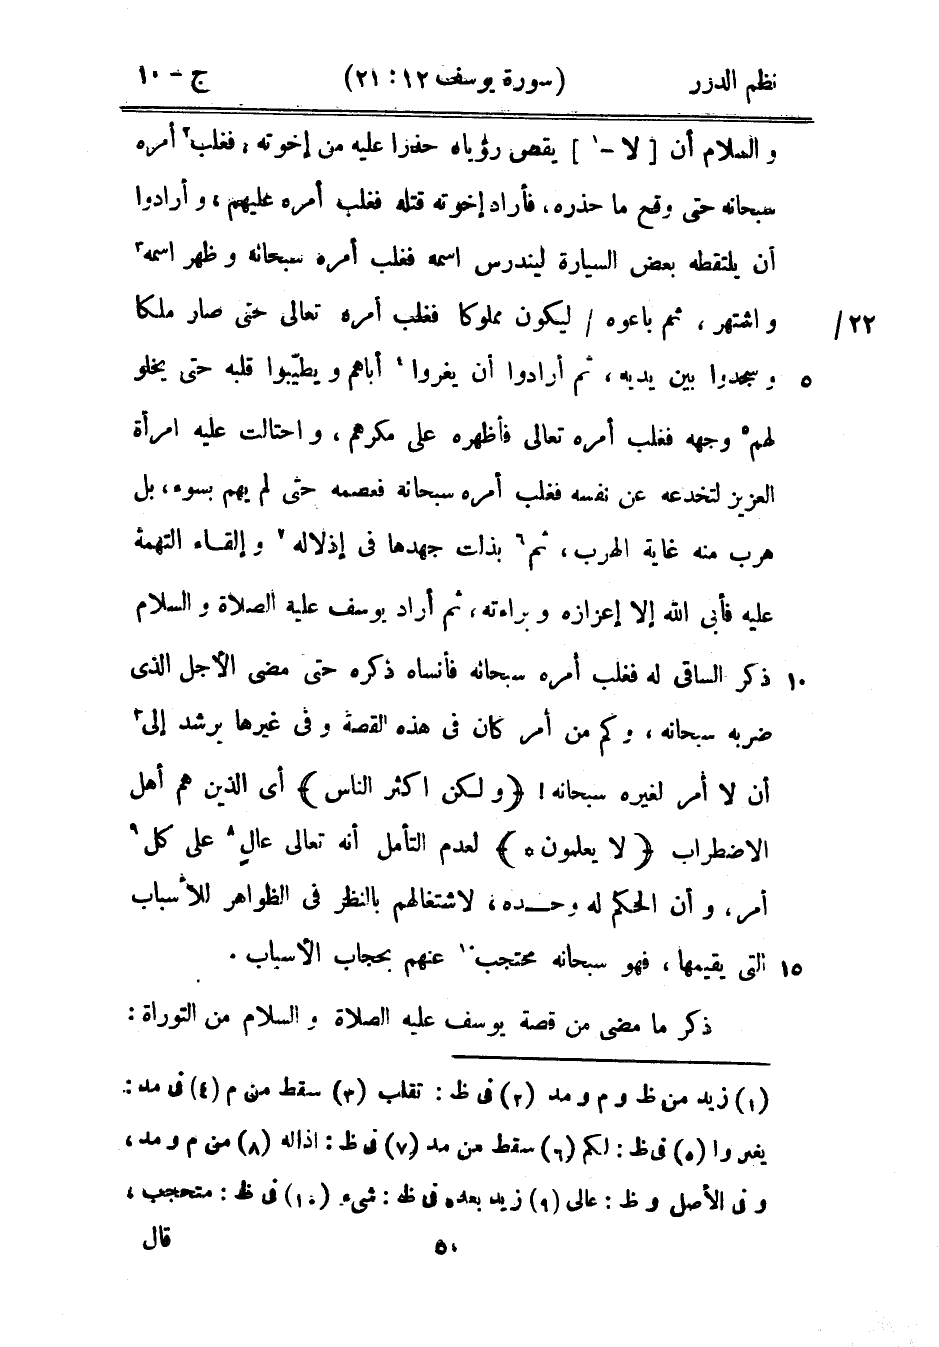 نظم الدرر (سورة يوسف ١٢ : ٢١) ج - ١٠
و السلام أن [ لا -١ ] يقص رؤياه حذرا عليه من إخوته ، فغلب٢ أمره
سبحانه حتى وقع ما حذره، فأراد إخوته قتله فغلب أمره عليهم ، و أرادوا
أن يلتقطه بعض السيارة ليندرس اسمه فغلب أمره سبحانه و ظهر اسمه٣
و اشتهر ، ثم باعوه / ليكون مملوكا فغلب أمره تعالى حتى صار ملكا ٢٢ /
٥ و سجدوا بين يديه ، ثم أرادوا أن يغروا٤ أباهم و يطيّبوا قلبه حتى يخلو
لهم٥ وجهه فغلب أمره تعالى فأظهره على مكرهم ، و احتالت عليه امرأة
العزيز لتخدعه عن نفسه فغلب أمره سبحانه فعصمه حتى لم يهم بسوء، بل
هرب منه غاية الهرب ، ثم٦ بذلت جهدها فى إذلاله٧ و إلقاء التهمة
عليه فأبى الله إلا إعزازه و براءته ، ثم أراد يوسف عليه الصلاة و السلام
١٠ ذكر الساقى له فغلب أمره سبحانه فأنساه ذكره حتى مضى الأجل الذى
ضربه سبحانه ، و كم من أمر كان فى هذه القصة و فى غيرها يرشد إلى٣
أن لا أمر لغيره سبحانه ! ﴿و لكن اكثر الناس﴾ أى الذين هم أهل
الاضطراب ﴿ لا يعلمون ه﴾ لعدم التأمل أنه تعالى عالٍ٨ على كل٩
أمر، و أن الحكم له وحده، لاشتغالهم بالنظر فى الظواهر للأسباب
١٥ التى يقيمها ، فهو سبحانه محتجب١٠ عنهم بحجاب الأسباب .
ذكر ما مضى من قصة يوسف عليه الصلاة و السلام من التوراة :
(١) زيد من ظ و م و مد (٢) فى ظ : تقلب (٣) سقط من م (٤) فى مد :
يغير وا (٥) فى ظ : لكم (٦) سقط من مد (٧) فى ظ : اذاله (٨) من م و مد ،
و فى الأصل و ظ : عالى (٩) زيد بعده فى ظ : شىء (١٠) فى ظ : متحجب ،
٥٠ قال